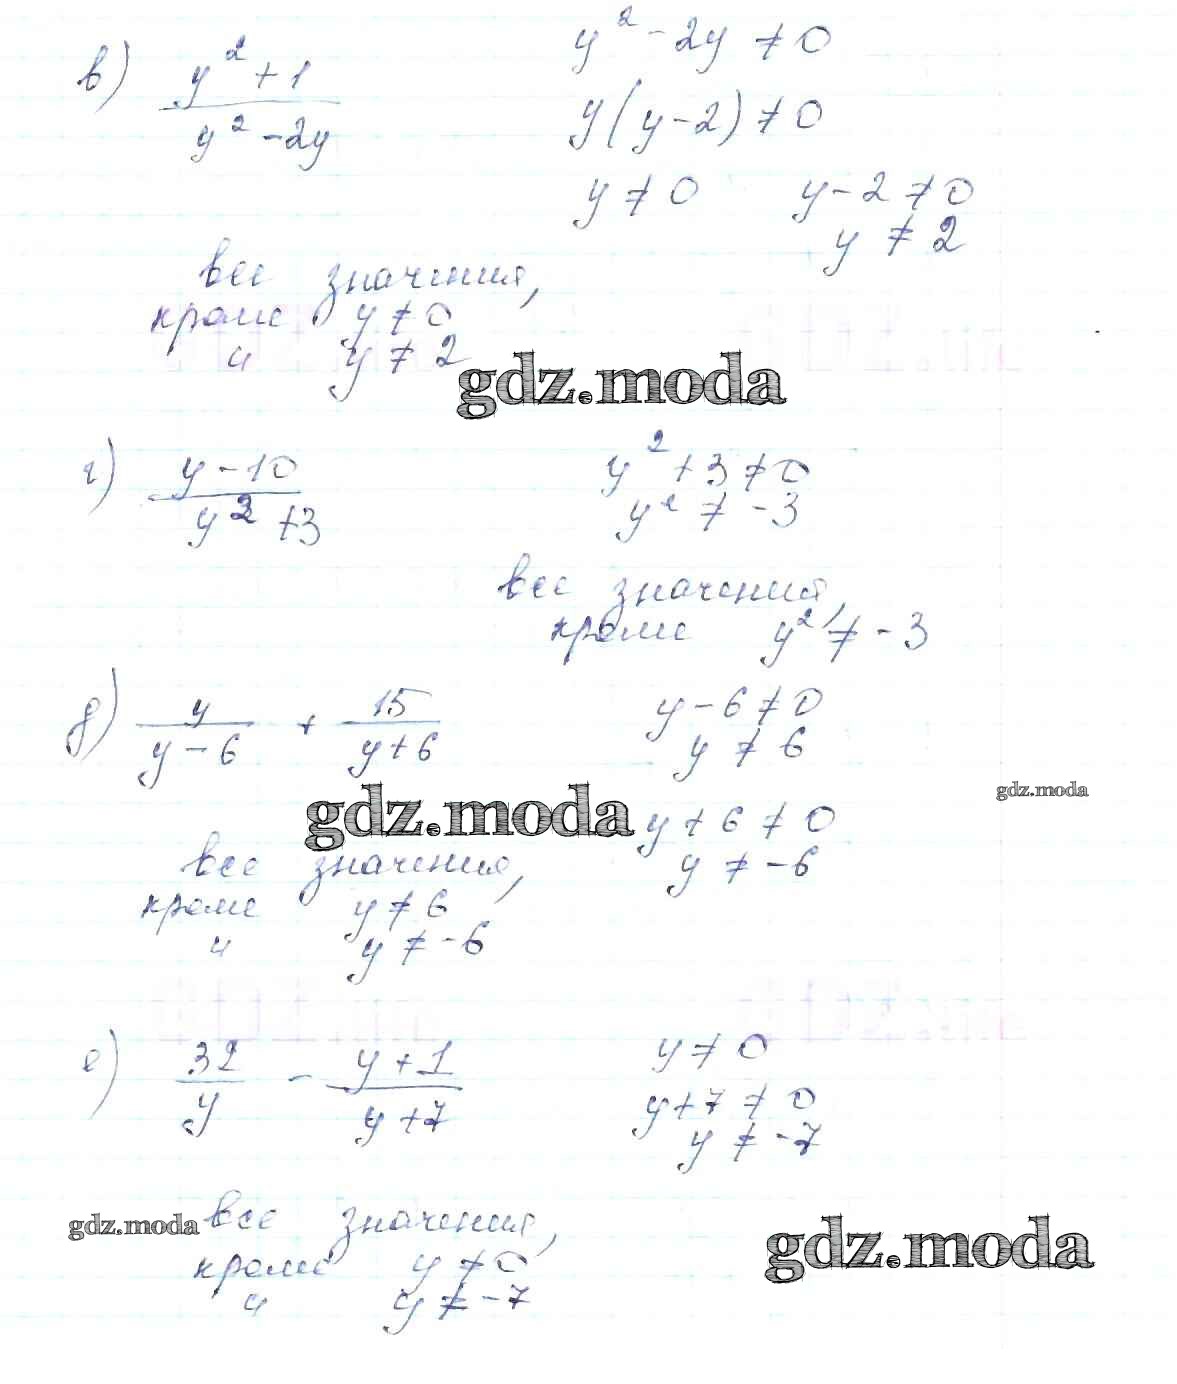 в) y² + 1 / y² - 2y
y² - 2y ≠ 0
y(y - 2) ≠ 0
y ≠ 0 y - 2 ≠ 0
y ≠ 2
все значения,
кроме y ≠ 0
и y ≠ 2
gdz.moda
г) y - 10 / y² + 3
y² + 3 ≠ 0
y² ≠ -3
все значения,
кроме y² ≠ -3
д) y / y - 6 + 15 / y + 6
y - 6 ≠ 0
y ≠ 6
gdz.moda
gdz.moda
y + 6 ≠ 0
y ≠ -6
все значения,
кроме y ≠ 6
и y ≠ -6
е) 32 / y - y + 1 / y + 7
y ≠ 0
y + 7 ≠ 0
y ≠ -7
gdz.moda
все значения,
кроме y ≠ 0
и y ≠ -7
gdz.moda